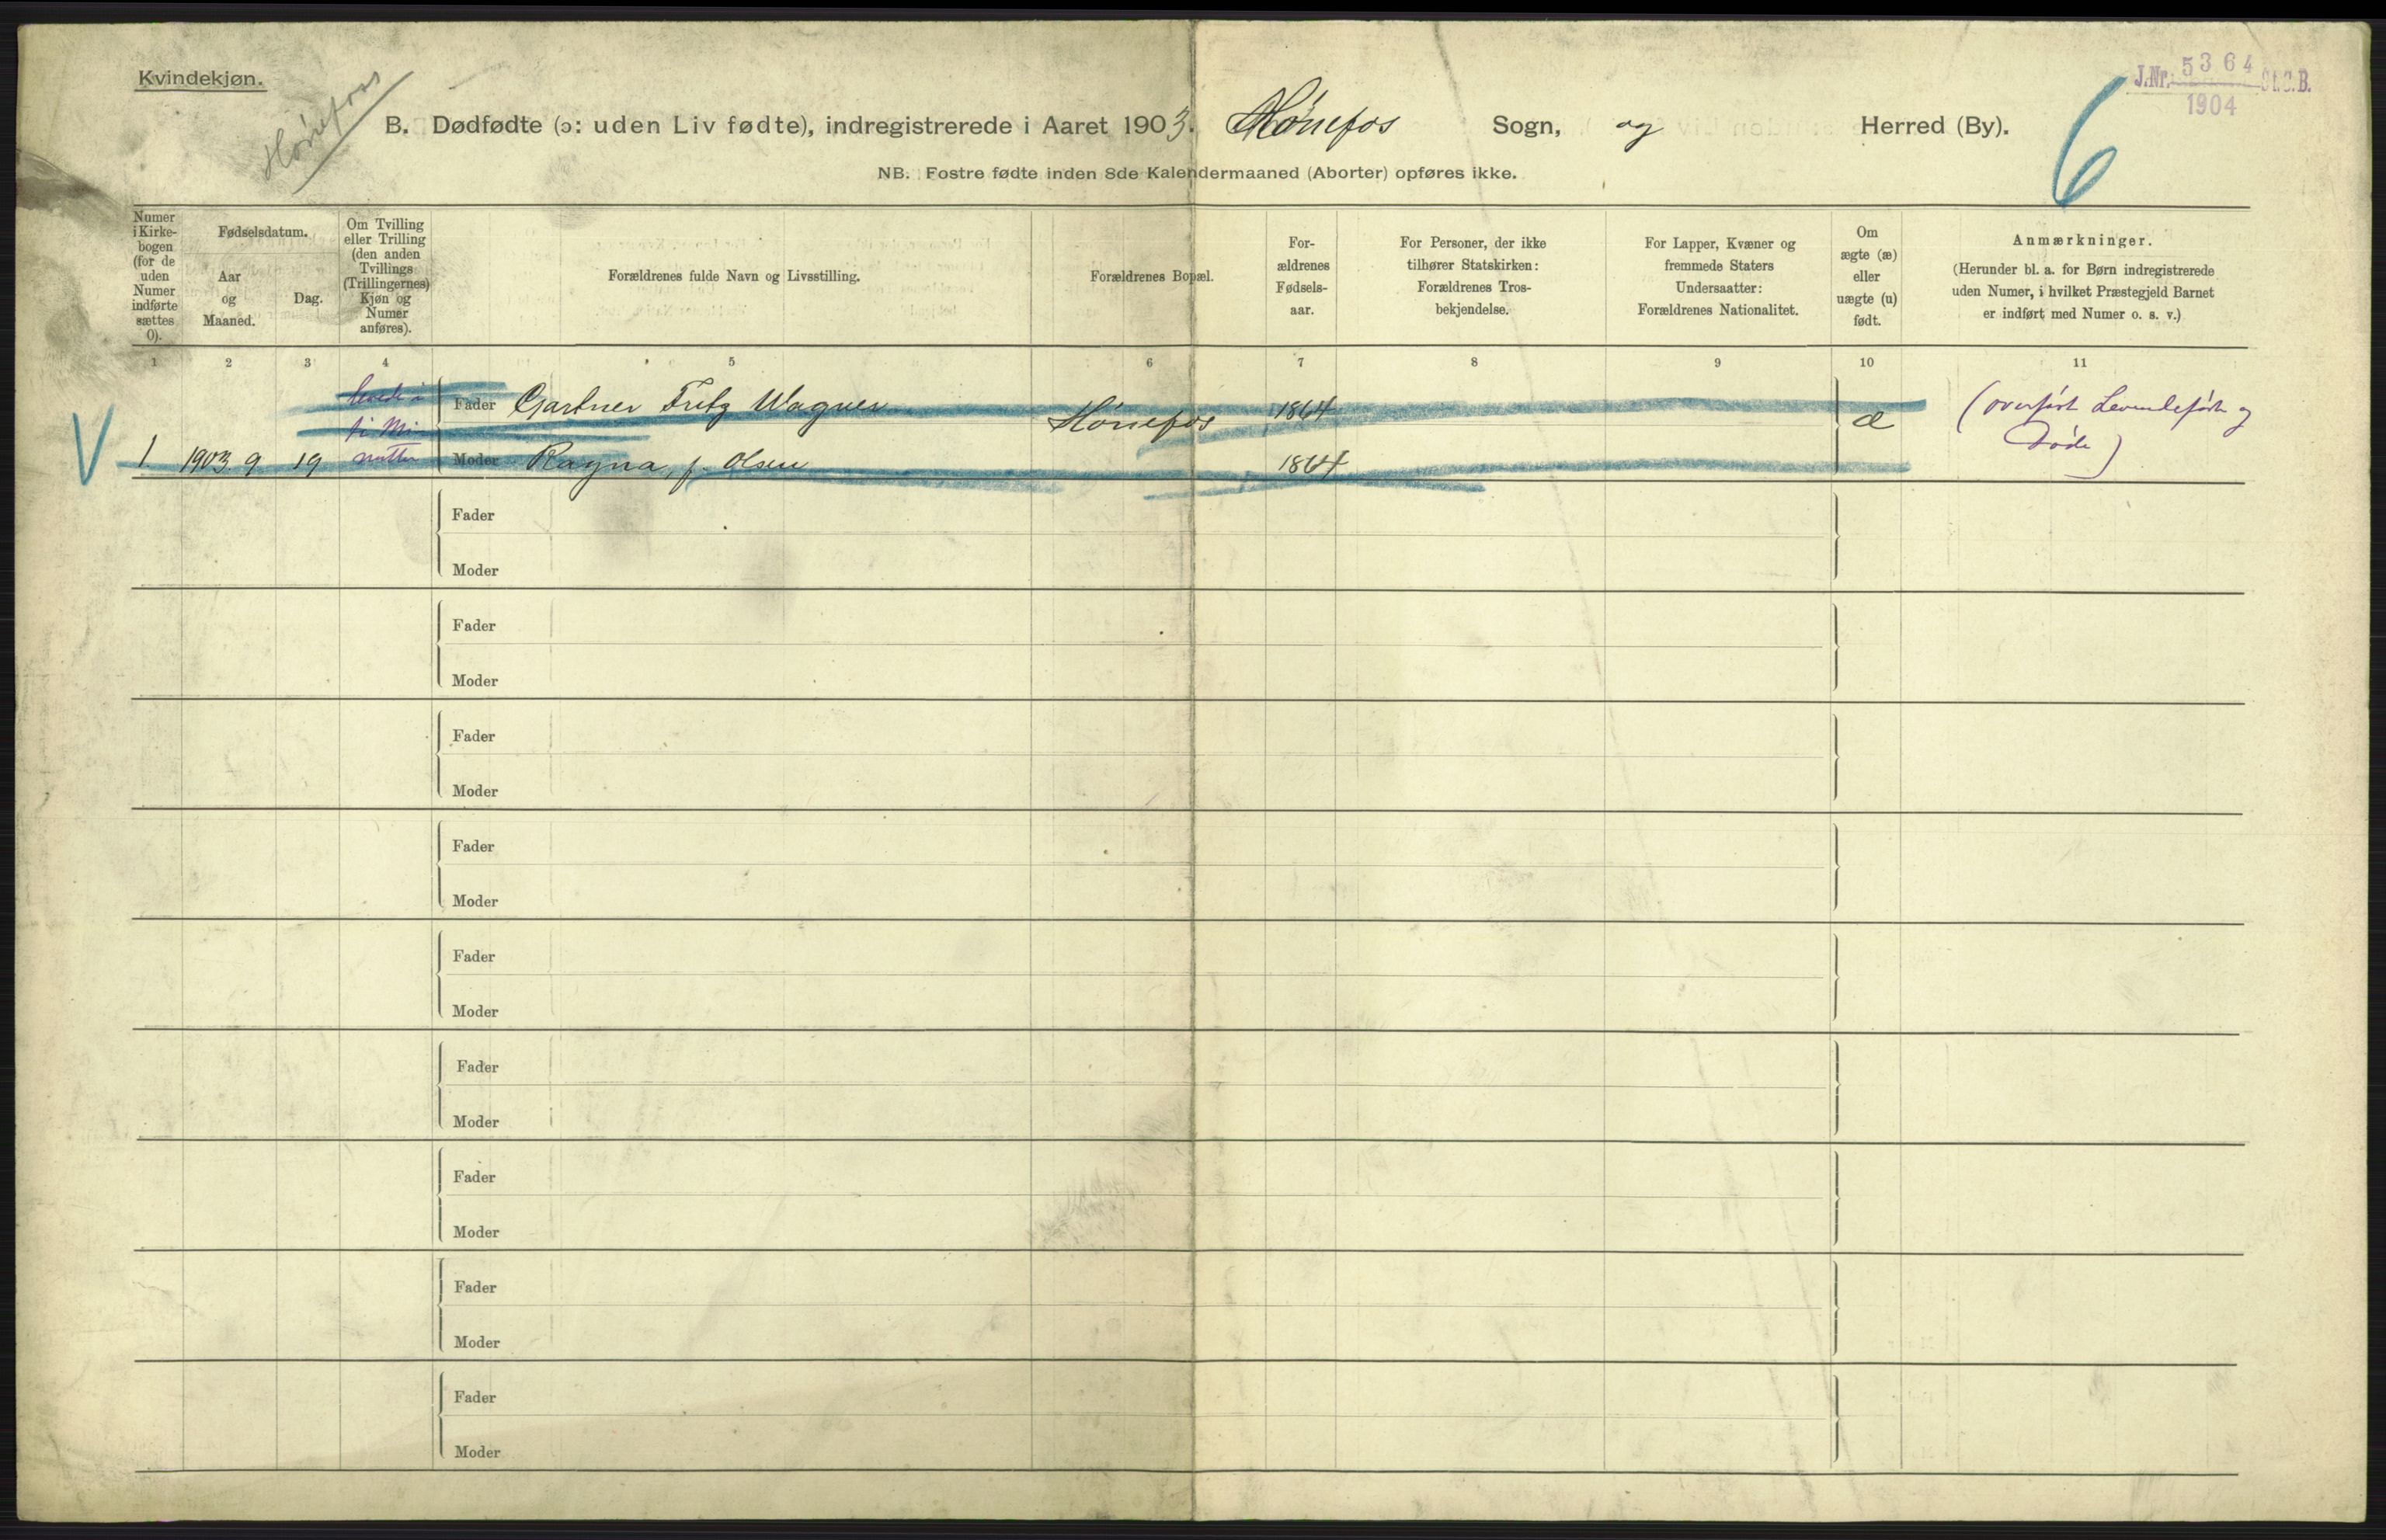 Kvindekjøn.
Hønefoss
J.Nr. 5364 St.C.B.
1904
6
B. Dødfødte (ɔ: uden Liv fødte), indregistrerede i Aaret 1903. Hønefos Sogn, og Herred (By).
NB. Fostre fødte inden 8de Kalendermaaned (Aborter) opføres ikke.
Numer i Kirke-bogen (for de uden Numer indførte sættes 0).
Fødselsdatum.
Aar og Maaned.
Dag.
Om Tvilling eller Trilling (den anden Tvillings (Trillingernes) Kjøn og Numer anføres).
Forældrenes fulde Navn og Livsstilling.
Forældrenes Bopæl.
For-ældrenes Fødsels-aar.
For Personer, der ikke tilhører Statskirken: Forældrenes Tros-bekjendelse.
For Lapper, Kvæner og fremmede Staters Undersaatter: Forældrenes Nationalitet.
Om ægte (æ) eller uægte (u) født.
Anmærkninger.
(Herunder bl. a. for Børn indregistrerede uden Numer, i hvilket Præstegjeld Barnet er indført med Numer o. s. v.)
1 2 3 4 5 6 7 8 9 10 11
levede i
ti Mi
nutter
Fader Gartner Fritz Wagner Hønefos 1864 æ (overført Levendefødte og
Døde)
V 1. 1903. 9 19 Moder Ragna, f. Olsen 1864
Fader
Moder
Fader
Moder
Fader
Moder
Fader
Moder
Fader
Moder
Fader
Moder
Fader
Moder
Fader
Moder
Fader
Moder